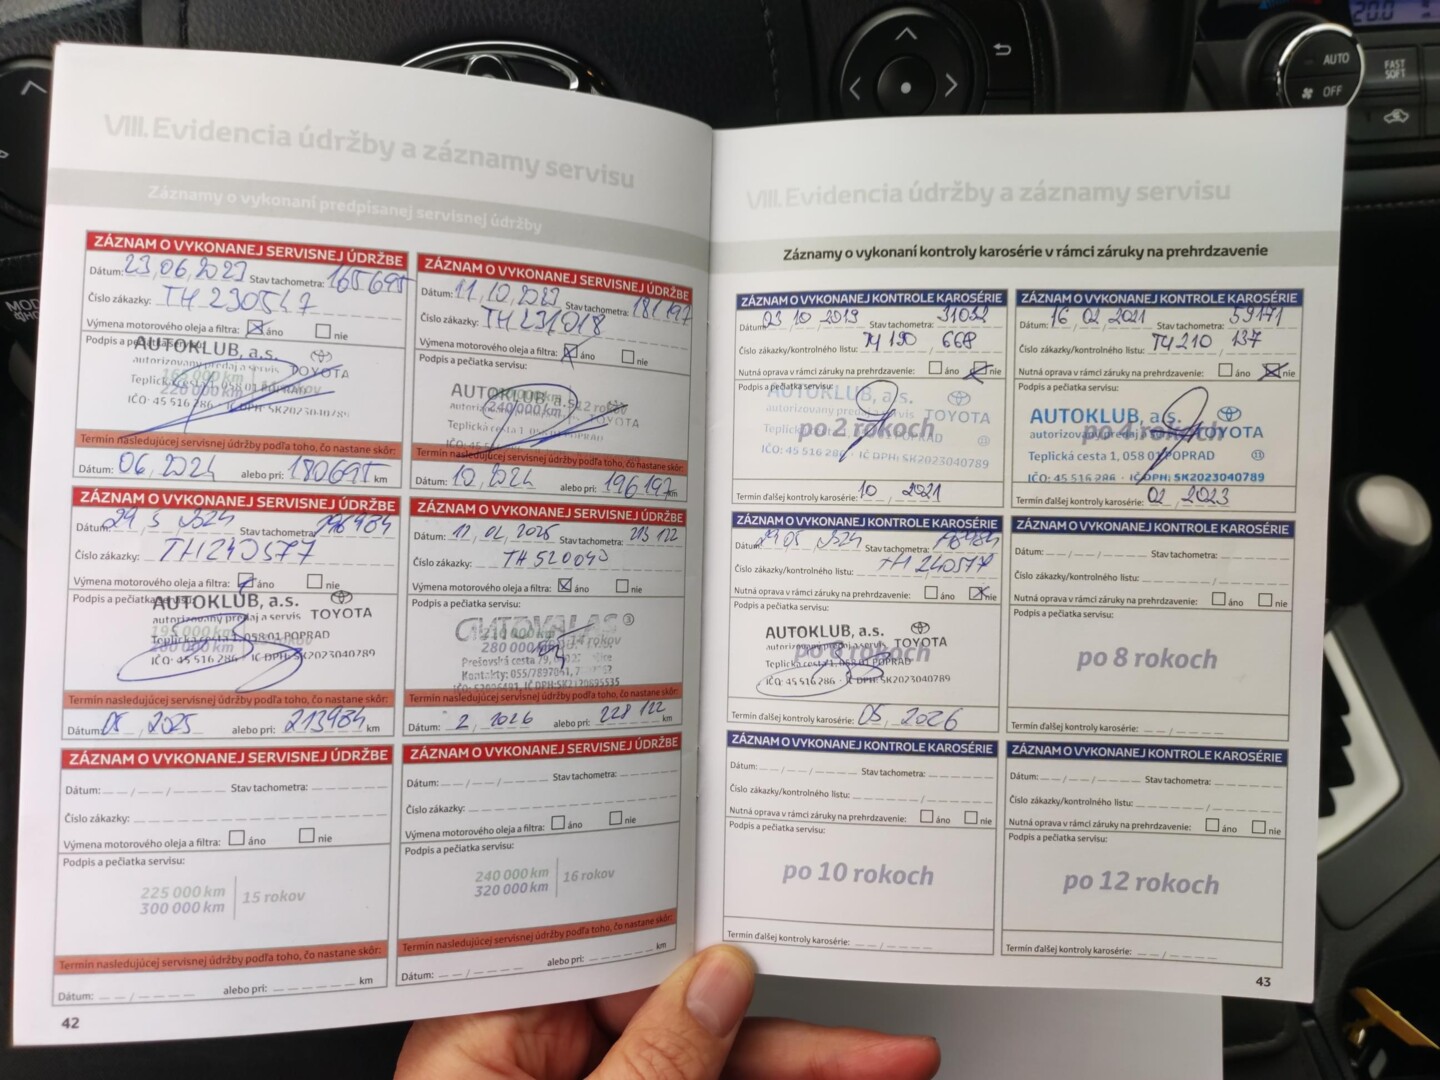 VIII. Evidencia údržby a záznamy servisu
Záznamy o vykonaní predpísanej servisnej údržby
ZÁZNAM O VYKONANEJ SERVISNEJ ÚDRŽBE
Dátum: 23, 06, 2023 Stav tachometra: 165695
Číslo zákazky: TH 230547
Výmena motorového oleja a filtra: áno nie
Podpis a pečiatka servisu:
AUTOKLUB, a.s.
autorizovaný predaj a servis TOYOTA
Teplická cesta 1, 058 01 POPRAD
IČO: 45 516 286 · IČ DPH: SK2023040789
Termín nasledujúcej servisnej údržby podľa toho, čo nastane skôr:
Dátum: 06, 2024 alebo pri: 180695 km
ZÁZNAM O VYKONANEJ SERVISNEJ ÚDRŽBE
Dátum: 11, 10, 2023 Stav tachometra: 181197
Číslo zákazky: TH 231018
Výmena motorového oleja a filtra: áno nie
Podpis a pečiatka servisu:
AUTOKLUB, a.s.
240 000 km 12 rokov
TOYOTA
Teplická cesta 1, 058 01 POPRAD
Termín nasledujúcej servisnej údržby podľa toho, čo nastane skôr:
Dátum: 10, 2024 alebo pri: 196197 km
ZÁZNAM O VYKONANEJ SERVISNEJ ÚDRŽBE
Dátum: 29 5 2024 Stav tachometra: 198484
Číslo zákazky: TH240577
Výmena motorového oleja a filtra: áno nie
Podpis a pečiatka servisu:
AUTOKLUB, a.s.
autorizovaný predaj a servis TOYOTA
195 000 km
Teplická cesta 1, 058 01 POPRAD
IČO: 45 516 286 · IČ DPH: SK2023040789
Termín nasledujúcej servisnej údržby podľa toho, čo nastane skôr:
Dátum: 05, 2025 alebo pri: 213484 km
ZÁZNAM O VYKONANEJ SERVISNEJ ÚDRŽBE
Dátum: 12, 02, 2025 Stav tachometra: 213 122
Číslo zákazky: TH 520040
Výmena motorového oleja a filtra: áno nie
Podpis a pečiatka servisu:
AUTOVALAS
210 000 km
280 000 km 14 rokov
Prešovská cesta 79,
Kontakty: 055/7897041,
Termín nasledujúcej servisnej údržby podľa toho, čo nastane skôr:
Dátum: 2, 2026 alebo pri: 228 122 km
ZÁZNAM O VYKONANEJ SERVISNEJ ÚDRŽBE
Dátum: Stav tachometra:
Číslo zákazky:
Výmena motorového oleja a filtra: áno nie
Podpis a pečiatka servisu:
225 000 km
300 000 km 15 rokov
Termín nasledujúcej servisnej údržby podľa toho, čo nastane skôr:
Dátum: alebo pri: km
ZÁZNAM O VYKONANEJ SERVISNEJ ÚDRŽBE
Dátum: Stav tachometra:
Číslo zákazky:
Výmena motorového oleja a filtra: áno nie
Podpis a pečiatka servisu:
240 000 km
320 000 km 16 rokov
Termín nasledujúcej servisnej údržby podľa toho, čo nastane skôr:
Dátum: alebo pri: km
42
VIII. Evidencia údržby a záznamy servisu
Záznamy o vykonaní kontroly karosérie v rámci záruky na prehrdzavenie
ZÁZNAM O VYKONANEJ KONTROLE KAROSÉRIE
Dátum: 03 10 2019 Stav tachometra: 31032
Číslo zákazky/kontrolného listu: TH 190 668
Nutná oprava v rámci záruky na prehrdzavenie: áno nie
Podpis a pečiatka servisu:
AUTOKLUB, a.s.
autorizovaný predaj a servis TOYOTA
po 2 rokoch
Teplická cesta 1, 058 01 POPRAD
IČO: 45 516 286 · IČ DPH: SK2023040789
Termín ďalšej kontroly karosérie: 10 2021
ZÁZNAM O VYKONANEJ KONTROLE KAROSÉRIE
Dátum: 16 02 2021 Stav tachometra: 59171
Číslo zákazky/kontrolného listu: TH 210 137
Nutná oprava v rámci záruky na prehrdzavenie: áno nie
Podpis a pečiatka servisu:
AUTOKLUB, a.s.
po 4 rokoch
autorizovaný predaj a servis TOYOTA
Teplická cesta 1, 058 01 POPRAD
IČO: 45 516 286 · IČ DPH: SK2023040789
Termín ďalšej kontroly karosérie: 02 2023
ZÁZNAM O VYKONANEJ KONTROLE KAROSÉRIE
Dátum: 29 05 2024 Stav tachometra: 198484
Číslo zákazky/kontrolného listu: TH 240577
Nutná oprava v rámci záruky na prehrdzavenie: áno nie
Podpis a pečiatka servisu:
AUTOKLUB, a.s.
autorizovaný predaj a servis TOYOTA
Teplická cesta 1, 058 01 POPRAD
IČO: 45 516 286 · IČ DPH: SK2023040789
Termín ďalšej kontroly karosérie: 05, 2026
ZÁZNAM O VYKONANEJ KONTROLE KAROSÉRIE
Dátum: Stav tachometra:
Číslo zákazky/kontrolného listu:
Nutná oprava v rámci záruky na prehrdzavenie: áno nie
Podpis a pečiatka servisu:
po 8 rokoch
Termín ďalšej kontroly karosérie:
ZÁZNAM O VYKONANEJ KONTROLE KAROSÉRIE
Dátum: Stav tachometra:
Číslo zákazky/kontrolného listu:
Nutná oprava v rámci záruky na prehrdzavenie: áno nie
Podpis a pečiatka servisu:
po 10 rokoch
Termín ďalšej kontroly karosérie:
ZÁZNAM O VYKONANEJ KONTROLE KAROSÉRIE
Dátum: Stav tachometra:
Číslo zákazky/kontrolného listu:
Nutná oprava v rámci záruky na prehrdzavenie: áno nie
Podpis a pečiatka servisu:
po 12 rokoch
Termín ďalšej kontroly karosérie:
43
AUTO
OFF
FAST
SOFT